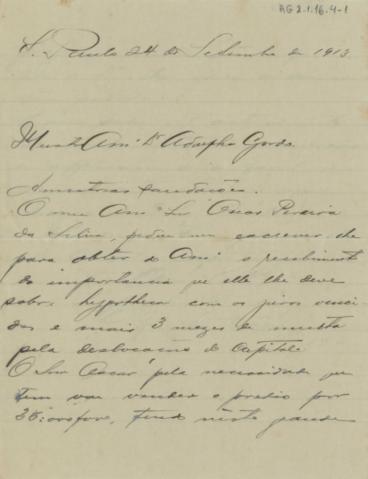 AG 2.1.16.4-1
S. Paulo 24 de Setembro de 1913
Am.º Dr Adolpho Gordo
Amistosas saudações.
O meu Am.º Snr Oscar Pereira
da Silva, pedio-me escrever-lhe
para obter do Am.º o recebimento
da importancia que elle lhe deve
sobre hypotheca com os juros venci-
dos e mais 3 mezes de multa
pela deslocação do Capital.
O Snr Oscar pela necessidade que
tem vai vender o predio por
tendo n'este